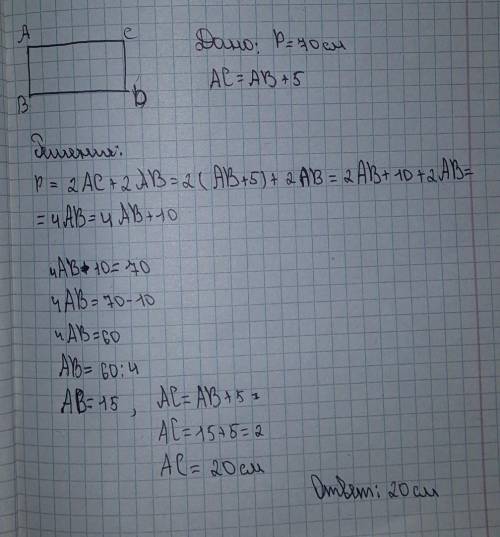 A C
Дано: P=70см
AC=AB+5
B D
Решение:
P= 2AC+2AB=2(AB+5)+2AB=2AB+10+2AB=
=4AB=4AB+10
4AB+10=70
4AB=70-10
4AB=60
AB=60:4
AB=15, AC=AB+5=
AC=15+5=2
AC=20см
Ответ: 20см